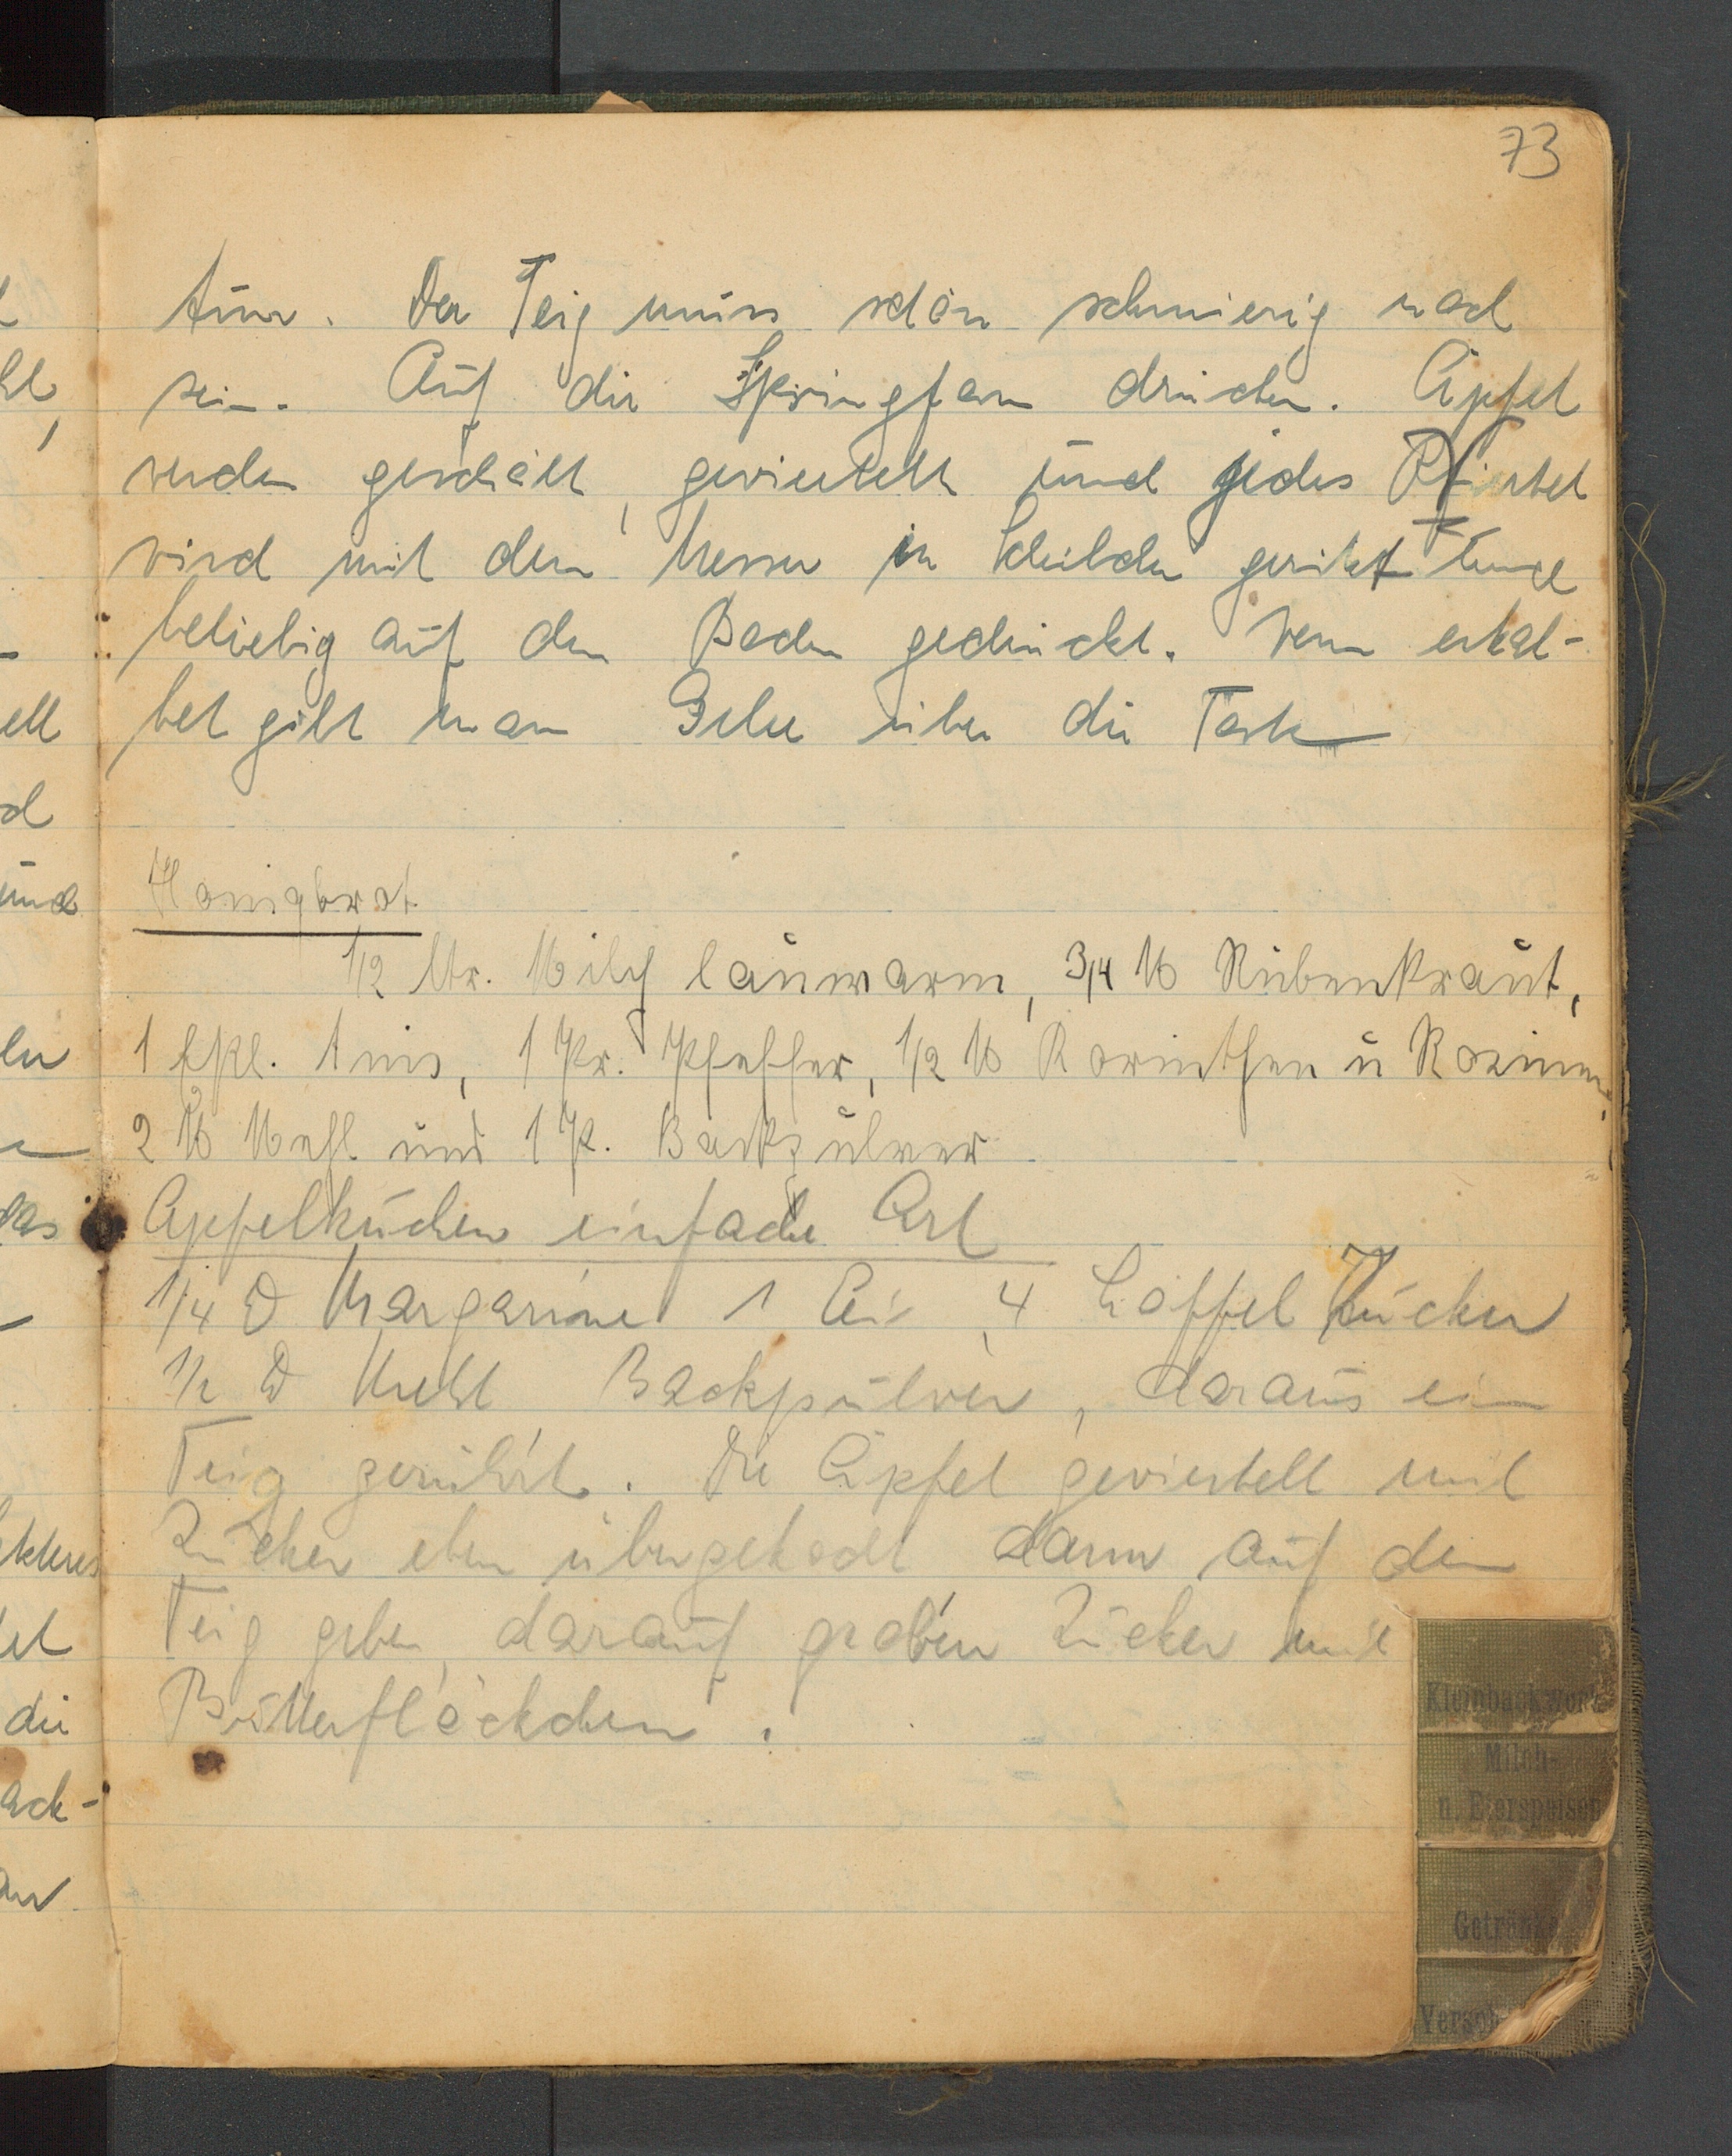 73
tun. Der Teig muss schön schmierig noch
sein. Auf die Springform drücken. Äpfel
werden geschält, geviertelt und jedes Viertel
wird mit dem Messer in Scheibchen geritzt und
beliebig auf den Boden gedrückt. Wenn erkal-
tet gibt man Gelee über die Torte
Honigbrot
1/2 Ltr. Milch lauwarm, 3/4 ℔ Rübenkraut,
1 Eßl. Anis, 1 Pr. Pfeffer, 1/2 ℔ Korinthen u Rosinen
2 ℔ Mehl und 1 P. Backpulver
Apfelkuchen einfache Art
1/4 ℔ Margarine 1 Ei, 4 Löffel Zucker
1/2 ℔ Mehl Backpulver, daraus ein
Teig gerührt. Die Äpfel geviertelt mit
Zucker eben übergekocht dann auf den
Teig geben, darauf groben Zucker mit
Butterflöckchen.
Kleinbackwerk
Milch-
u. Eierspeisen
Getränke
ell
und
das
die